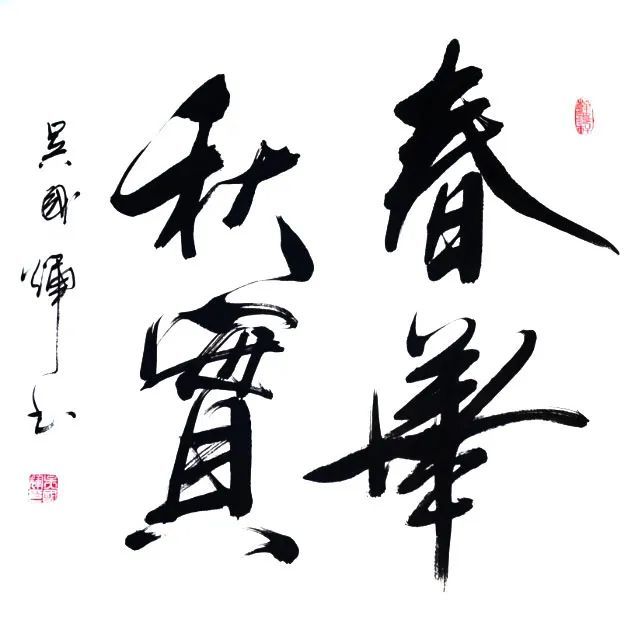 春華
秋實
吳國輝书